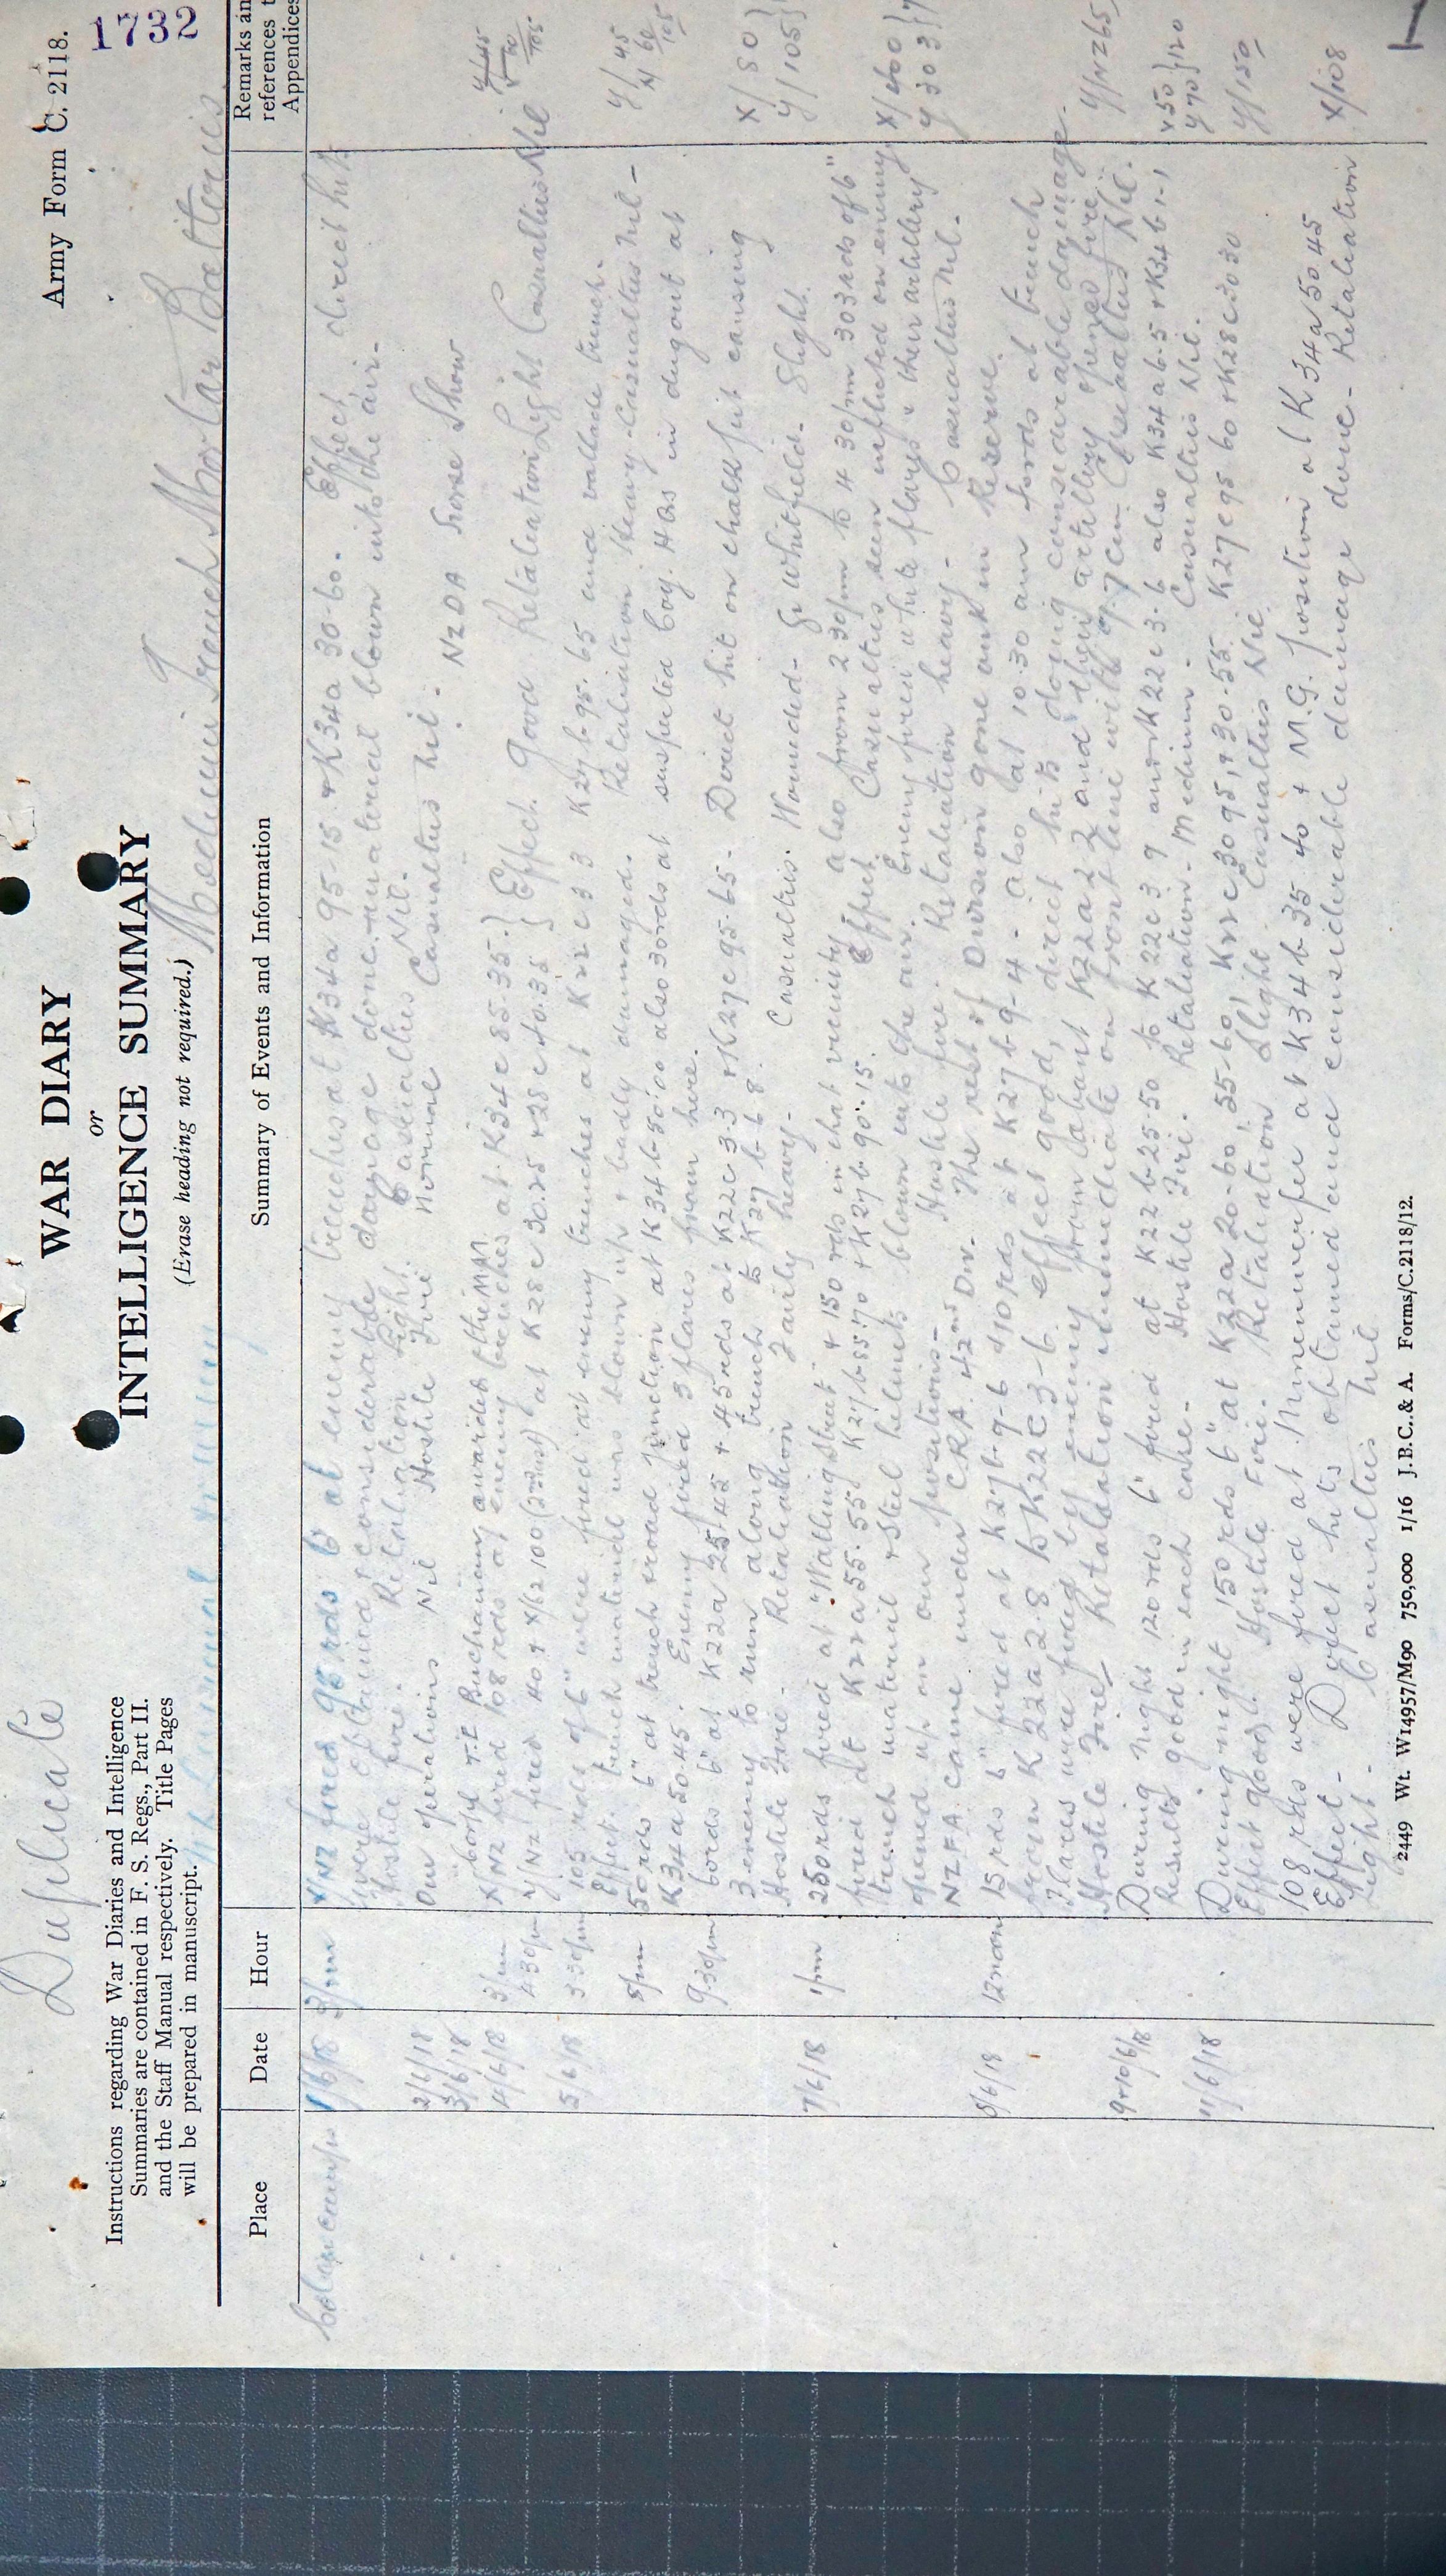 Duplicate
Army Form C. 2118.
1732
WAR DIARY
or
INTELLIGENCE SUMMARY
(Erase heading not required.)
Instructions regarding War Diaries and Intelligence
Summaries are contained in F. S. Regs., Part II.
and the Staff Manual respectively. Title Pages
will be prepared in manuscript.
Medium Trench Mortar Batteries.
Place
Date
Hour
Summary of Events and Information
Remarks an
references t
Appendices
1/6/18 3pm XNZ fired 95 rds 6" at enemy trenches at K34a 95-15 + K34a 30-60. Effect direct hits
were obtained & considerable damage done. material blown into the air.
Hostile fire. Retaliation Light. Casualties Nil.
2/6/18 Our operations Nil Hostile Fire Normal Casualties Nil.
3/6/18 Buchanan awarded the MM NZDA Horse Show
4/6/18 3pm X/NZ fired 108 rds at enemy trenches at K34c 85.35. } Effect Good Retaliation Light Casualties Nil
4.30pm Y/NZ fired 40 + X/62 100 (2nd) at K28c 30.25 + 28c 40.35 }
5/6/18 3.30pm 105 rds of 6" were fired at enemy trenches at K22c 3 3 K27b.95.65 and valade trench.
Effect. trench material was blown up & badly damaged. Retaliation. Heavy. Casualties Nil -
5pm 50 rds 6" at trench & road junction at K34b.50.00 also 30rds at suspected Coy. HQs in dugout at
K34a 50.45. Enemy fired 3 flares from here.
9.30pm 60rds 6" at K22a 25.45 + 45rds at K22c 3.3 + K27c 95.65- Direct hit on chalk pit causing
3 enemy to run along trench to K27b.6 8.
Hostile Fire - Retaliation Fairly heavy - Casualties. Wounded - Gr Whitfield - Slight.
7/6/18 1pm 250rds fired at "Watling Street" + 150 rds in that vicinity also from 2 30pm to 4 30pm 303rds of 6"
fired at K22a 55.55 K27b.85.70 + K27b.90.15. Effect. Casualties seen inflicted on enemy
trench material & steel helmets blown into the air. Enemy fired white flares & their artillery
opened up on our positions - Hostile fire. Retaliation heavy - Casualties Nil.
NZFA came under CRA 42nd Div. The rest of Division gone back in Reserve.
8/6/18 12 noon 15 rds 6" fired at K27b.9-6 + 10 rds at K27b-9-4 - also at 10.30 am rds at trench
from K22a 2.8 to K22c 3-6. effect good, direct hits doing considerable damage.
Flares were fired by enemy from about K22a 2.2 and their artillery opened fire.
Hostile Fire, Retaliation immediate on front line with 7.7cm Casualties Nil.
9+10/6/18 During night 120 rds 6" fired at K22b-25-50 to K22c 3 9 and K22c 3.6 also K34a 6.5 + K34b 1-1
Results good in each case - Hostile Fire. Retaliation. Medium. Casualties Nil.
11/6/18 During night 150 rds 6" at K22a 20-60, 55-60, K22c 30 95, + 30-55. K27c 95 60 + K28c 30 30
Effect good. Hostile Fire. Retaliation Slight. Casualties Nil.
108 rds were fired at Minenwerfer at K34b-35 40 + M.G. position at K34a 50 45
Effect - Direct hits obtained and considerable damage done - Retaliation
Light - Casualties Nil
X/80 }
Y/105 }
X/400 }
Y 303 }
Y/NZ65
X50 }120
Y70 }
Y/150
X/108
2449 Wt. W14957/M90 750,000 1/16 J.B.C. & A. Forms/C.2118/12.